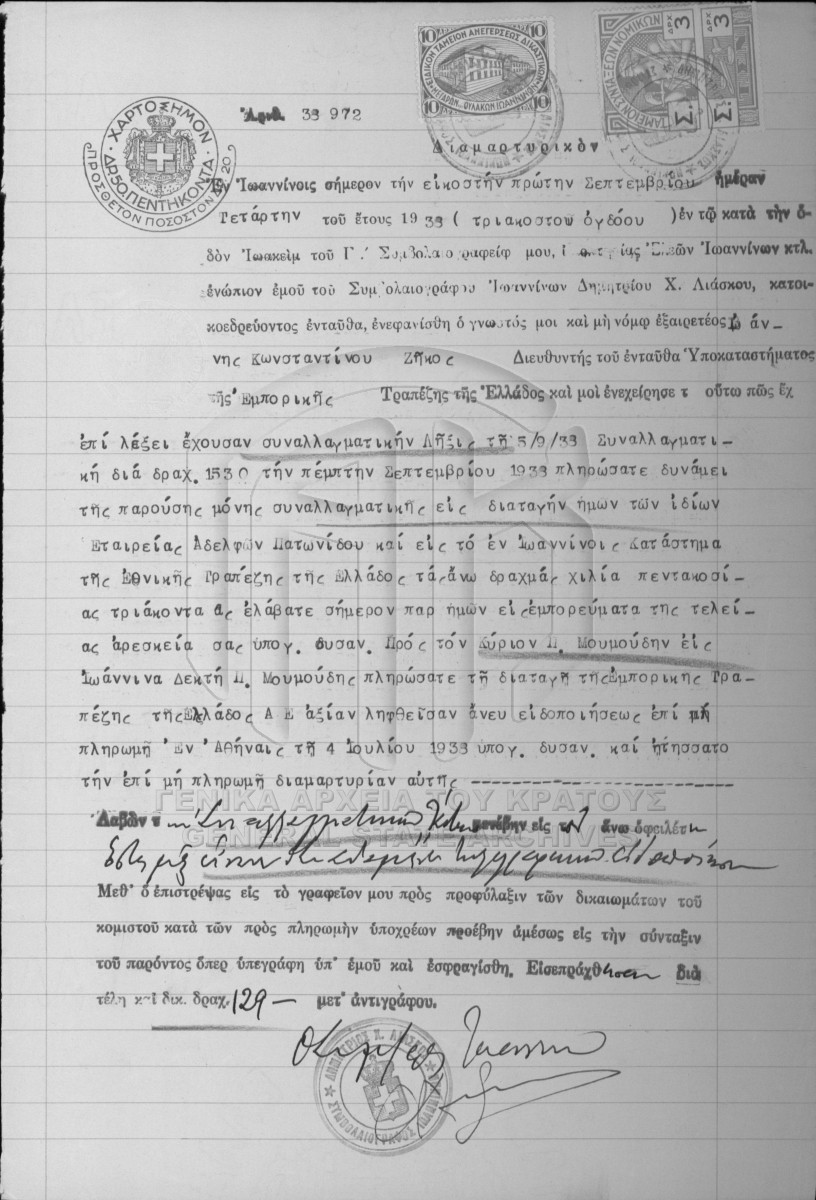 ΧΑΡΤΟΣΗΜΟΝ
ΔΡ. 50. ΠΕΝΤΗΚΟΝΤΑ
ΠΡΟΣΘΕΤΟΝ ΠΟΣΟΣΤΟΝ 20
10 10
ΕΙΔΙΚΟΝ ΤΑΜΕΙΟΝ ΑΝΕΓΕΡΣΕΩΣ ΔΙΚΑΣΤΙΚΩΝ
ΦΥΛΑΚΩΝ ΙΩΑΝΝΙΝΩΝ
10 10
ΔΡΧ 3 3
ΤΑΜΕΙΟΝ ΣΥΝΤΑΞΕΩΝ ΝΟΜΙΚΩΝ
Τ.Σ.
Ἀριθ. 38 972
Διαμαρτυρικὸν
Ἐν Ἰωαννίνοις σήμερον τὴν εικοστήν πρώτην Σεπτεμβρίου ἡμέραν
Τετάρτην τοῦ ἔτους 1938 ( τριακοστου ογδόου ) ἐν τῷ κατὰ τὴν ὁ-
δὸν Ἰωακεὶμ τοῦ Γ΄ Συμβολαιογραφείῳ μου, Ἰωαννίνων κτλ.
ἐνώπιον ἐμοῦ τοῦ Συμβολαιογράφου Ἰωαννίνων Δημητρίου Χ. Λιάσκου, κατοι-
κοεδρεύοντος ἐνταῦθα, ἐνεφανίσθη ὁ γνωστός μοι καὶ μὴ νόμῳ ἐξαιρετέος Ιω άν-
νης Κωνσταντίνου Ζῆκος Διευθυντής τοῦ ἐνταῦθα Ὑποκαταστήματος
τῆς Εμπορικῆς Τραπέζης τῆς Ἑλλάδος καὶ μοὶ ἐνεχείρησε τ ούτω πῶς ἐχ
επί λέξει έχουσαν συναλλαγματικήν Λῆξις τῇ 5/9/38 Συναλλαγματι-
κή διά δραχ. 1530 τήν πέμπτην Σεπτεμβρίου 1938 πληρώσατε δυνάμει
τῆς παρούσης μόνης συναλλαγματικῆς εις διαταγήν ημων τών ιδίων
Εταιρείας Αδελφών Πατωνίδου καί εις τό εν Ιωαννίνοις Κατάστημα
τῆς Εθνικῆς Τραπέζης τῆς Ελλάδος τάς άνω δραχμάς χιλία πεντακοσί-
ας τριάκοντα ας ελάβατε σήμερον παρ ημών εις εμπορεύματα της τελεί-
ας αρεσκεία σας υπογ. δυσαν. Πρός τόν Κύριον Π. Μουμούδην εις
Ιωάννινα Δεκτή Π. Μουμούδης πληρώσατε τῇ διαταγῇ τῆς Εμπορικης Τρα-
πέζης τῆς Ελλάδος Α Ε αξίαν ληφθεῖσαν άνευ ειδοποιήσεως επί μή
πληρωμῇ Εν Αθήναις τῇ 4 Ιουλίου 1938 υπογ. δυσαν. καί ητήσσατο
τήν επί μή πληρωμῇ διαμαρτυρίαν αυτῆς ------------------
ΓΕΝΙΚΑ ΑΡΧΕΙΑ ΤΟΥ ΚΡΑΤΟΥΣ
GENERAL STATE ARCHIVES
Λαβὼν τ ην Συναλλαγματικην μετέβην εἰς τ ἄνω ὀφειλέτ
Μεθ' ὃ ἐπιστρέψας εἰς τὸ γραφεῖον μου πρὸς προφύλαξιν τῶν δικαιωμάτων τοῦ
κομιστοῦ κατὰ τῶν πρὸς πληρωμὴν ὑποχρέων προέβην ἀμέσως εἰς τὴν σύνταξιν
τοῦ παρόντος ὅπερ ὑπεγράφη ὑπ' ἐμοῦ καὶ ἐσφραγίσθη. Εἰσεπράχθησαν διὰ
τέλη καὶ δικ. δραχ. 129- μετ' ἀντιγράφου.
ΣΥΜΒΟΛΑΙΟΓΡΑΦΟΣ